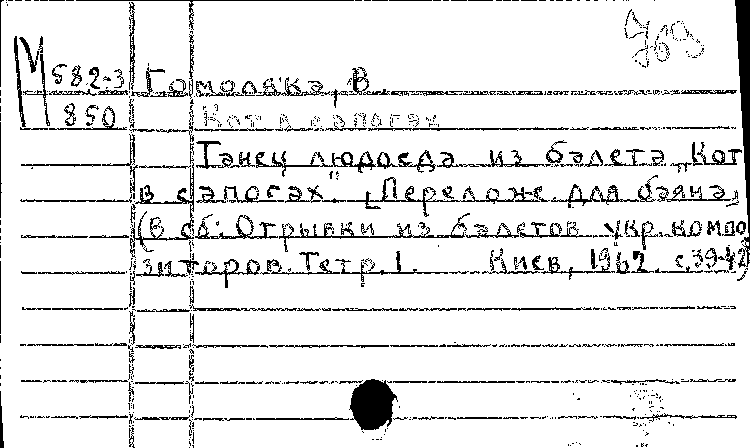 769
М 582-3 Гомоляка, В.
850 Кот в сапогах
Танец людоеда из балета „Кот
в сапогах". [Переложе. для баяна]
(В сб: Отрывки из балетов укр. компо
зиторов. Тетр. 1. Киев, 1962. с.39-42)